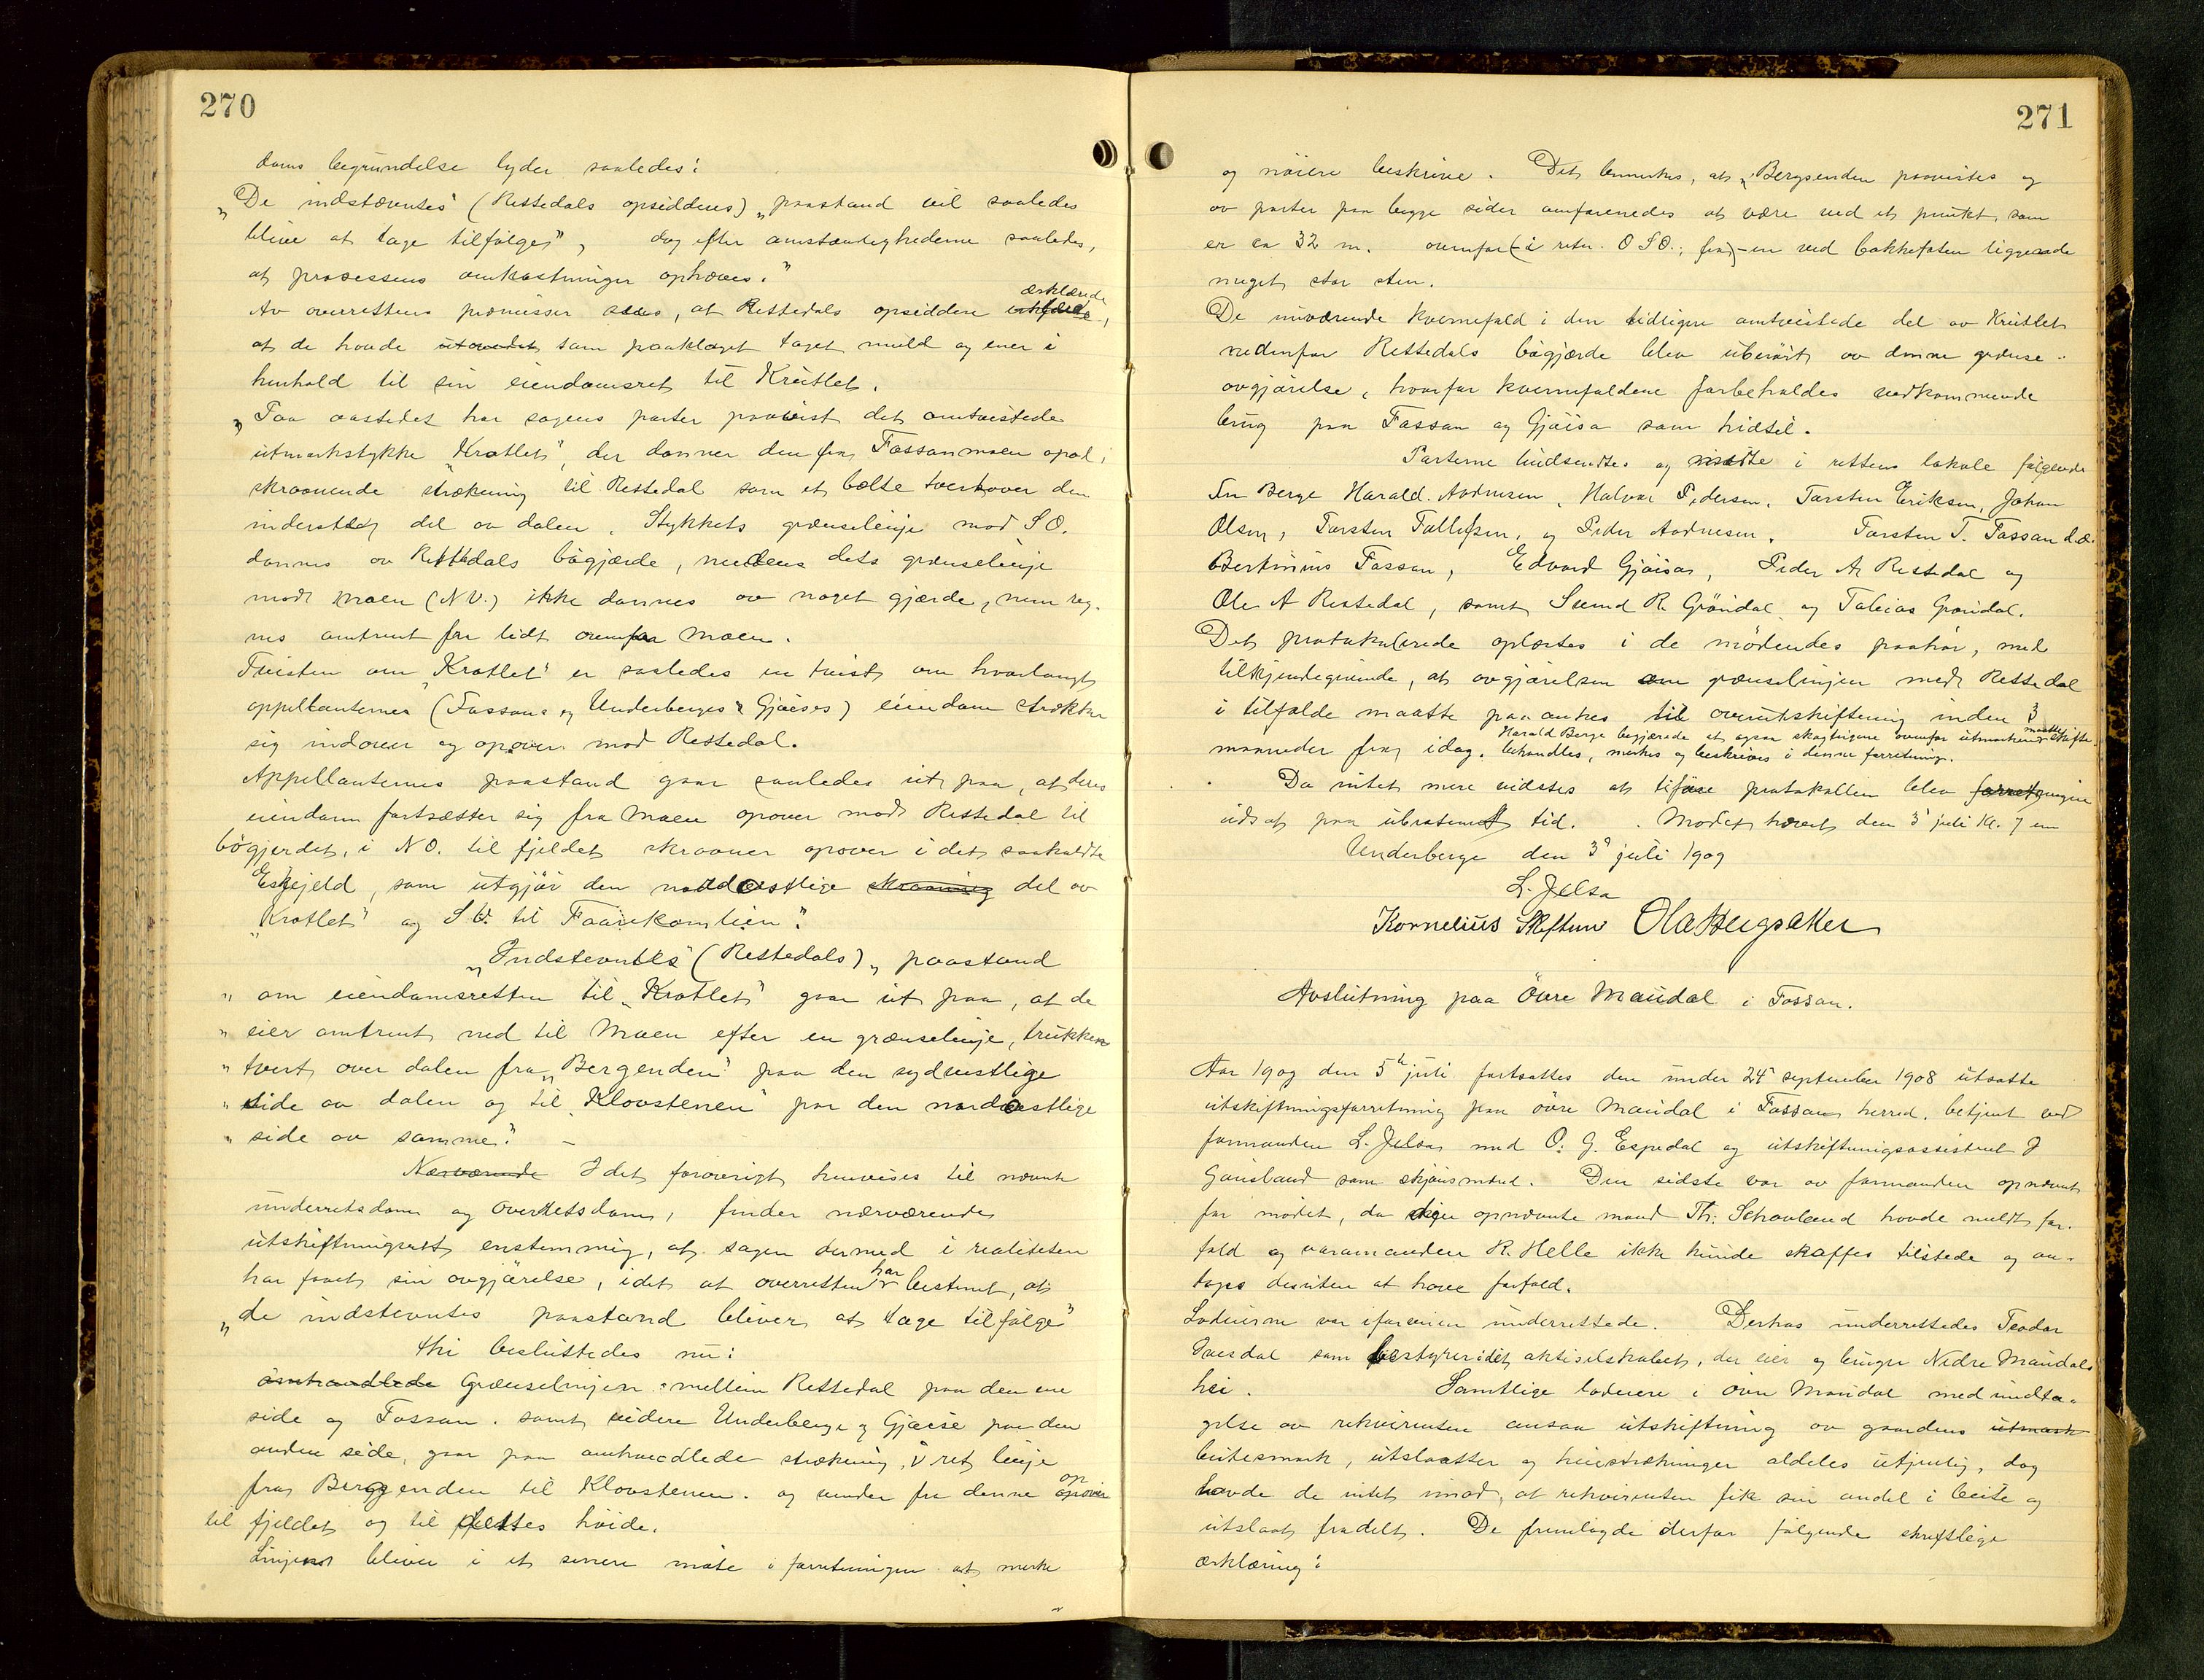 270
doms begrundelse lyder saaledes:
„De indstævntes" (Rettedals opsidderes) „paastand vil saaledes
blive at tage tilfølge", dog efter omstændighederne saaledes,
at processens omkostninger ophæves."
Av overrettens præmisser sees, at Rettedals opsiddere erklærede,
at de havde som paaklaget taget muld og ener i
henhold til sin eiendomsret til Krøtlet.
„Paa aastedet har sagens parter paavist det omtvistede
utmarkstykke „Krøtlet", der danner den fra Fossanmoen opad
skraanende strækning til Rettedal som et bælte tvertover den
inderste del av dalen. Stykkets grænselinje mod S O.
dannes av Rettedals bøgjærde, medens dets grænselinje
mod Moen (N V.) ikke dannes av noget gjærde, men reg-
nes omtrent fra lidt ovenfor Moen.
Tvisten om „Krøtlet" er saaledes en tvist om hvorlangt
appellanternes (Fossans og Underberges & Gjøises) eiendom strækker
sig indover og opover mod Rettedal.
Appellanternes paastand gaar saaledes ut paa, at deres
eiendom fortsætter sig fra Moen opover mod Rettedal til
bøgjerdet, i N O. til fjeldet skraaner opover i det saakaldte
Eskjeld, som utgjør den nordøstlige skraaning del av
„Krøtlet" og S V. til Faarekomlien."
„Indstevntes" (Rettedals) „paastand
" om eiendomsretten til „Krøtlet" gaar ut paa, at de
" eier omtrent ned til Moen efter en grænselinje, trukken
" tvert over dalen fra „Bergenden" paa den sydvestlige
" side av dalen og til „Klovstenen" paa den nordøstlige
" side av samme." –
Nærværende Idet forøvrigt henvises til nævnte
underretsdom og overretsdom, finder nærværende
utskiftningsret enstemmig, at sagen dermed i realiteten
har faaet sin avgjørelse, idet at overretten har bestemt, at
„de indstevntes paastand bliver at tage tilfølge"
thi besluttedes nu:
omhandlede Grænselinjen mellem Rettedal paa den ene
side og Fossan samt videre Underberge og Gjøise paa den
anden side, gaar paa omhandlede strækning i ret linje
fra Bergenden til Klovstenen og videre fra denne op
til fjeldet og til dettes høide.
Linjen bliver i et senere møte i forretningen at merke
271
og nøiere beskrive. Det bemerkes, at „Bergenden paavistes og
av parter paa begge sider omforenedes at være ved et punkt som
er ca 32 m. ovenfor (i retn. O S O., fra) en ved bakkefoten liggende
meget stor sten.
De nuværende kvernefald i den tidligere omtvistede del av Krøtlet
nedenfor Rettedals bøgjærde blev uberørt av denne grænse-
avgjørelse, hvorfor kvernefaldene forbeholdes vedkommende
brug paa Fossan og Gjøisa som hidtil.
Parterne hidsendtes og mødte i rettens lokale følgende
fra Berge Harald Andresen, Halvor Pedersen, Torsten Eriksen, Johan
Olsen, Torsten Tollefsen, og Peder Andresen. Torsten T. Fossan d.æ.
Bertinius Fossan, Edvard Gjøisa, Peder A Rettedal og
Ole A Rettedal, samt Svend R. Grøndal og Tobias Grøndal.
Det protokollerede oplæstes i de mødendes paahør, med
tilkjendegivende, at avgjørelsen om grænselinjen mod Rettedal
i tilfælde maatte paaankes til overutskiftning inden 3
Harald Berge begjærede at ogsaa skogteigene ovenfor utmarken maatte skifte
maaneder fra idag. behandles, merkes og beskrives i denne forretning.
Da intet mere vidstes at tilføre protokollen blev forretningen
udsat paa ubestemt tid. Mødet hævet den 3 juli Kl. 7 em
Underberge den 3 juli 1909
L. Jelsa
Kornelius Skiftun Ola Heigsaker
Avslutning paa Øvre Maudal i Fossan.
Aar 1909 den 5 juli fortsattes den under 24 september 1908 utsatte
utskiftningsforretning paa øvre Maudal i Fossans herred, betjent ved
formanden L. Jelsa med O. G. Espedal og utskiftningsassistent J
Gausland som skjønsmænd. Den sidste var av formanden opnævnt
for mødet, da den opnævnte mand Th. Schauland havde meldt for-
fald og varamanden R. Helle ikke kunde skaffes tilstede og an-
toges desuten at have forfald.
Lodeierne var iforveien underrettede. Derhos underrettedes Teodor
som bestyrer i det aktieselskabet, der eier og bruger Nedre Maudals
hei. Samtlige lodeiere i øvre Maudal med undta-
gelse av rekvirenten ansaa utskiftning av gaardens utmark
beitesmark, utslaatter og heiestrækninger aldeles utjenlig, dog
havde de intet imod, at rekvirenten fik sin andel i beite og
utslaat fradelt. De fremlagde derfor følgende skriftlige
erklæring: